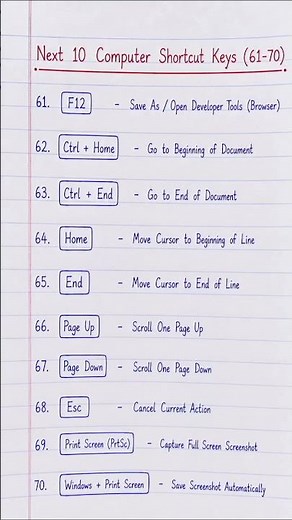 Next 10 Computer Shortcut Keys (61-70)
61. F12 - Save As / Open Developer Tools (Browser)
62. Ctrl + Home - Go to Beginning of Document
63. Ctrl + End - Go to End of Document
64. Home - Move Cursor to Beginning of Line
65. End - Move Cursor to End of Line
66. Page Up - Scroll One Page Up
67. Page Down - Scroll One Page Down
68. Esc - Cancel Current Action
69. Print Screen (PrtSc) - Capture Full Screen Screenshot
70. Windows + Print Screen - Save Screenshot Automatically